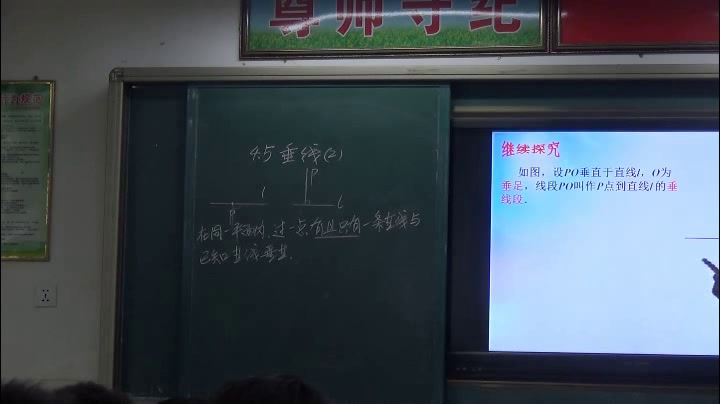 尊师守纪
4.5 垂线(2)
P
l
l
P
在同一平面内,过一点有且只有一条直线与
已知直线垂直.
继续探究
如图，设PO垂直于直线l，O为
垂足，线段PO叫作P点到直线l的垂
线段．